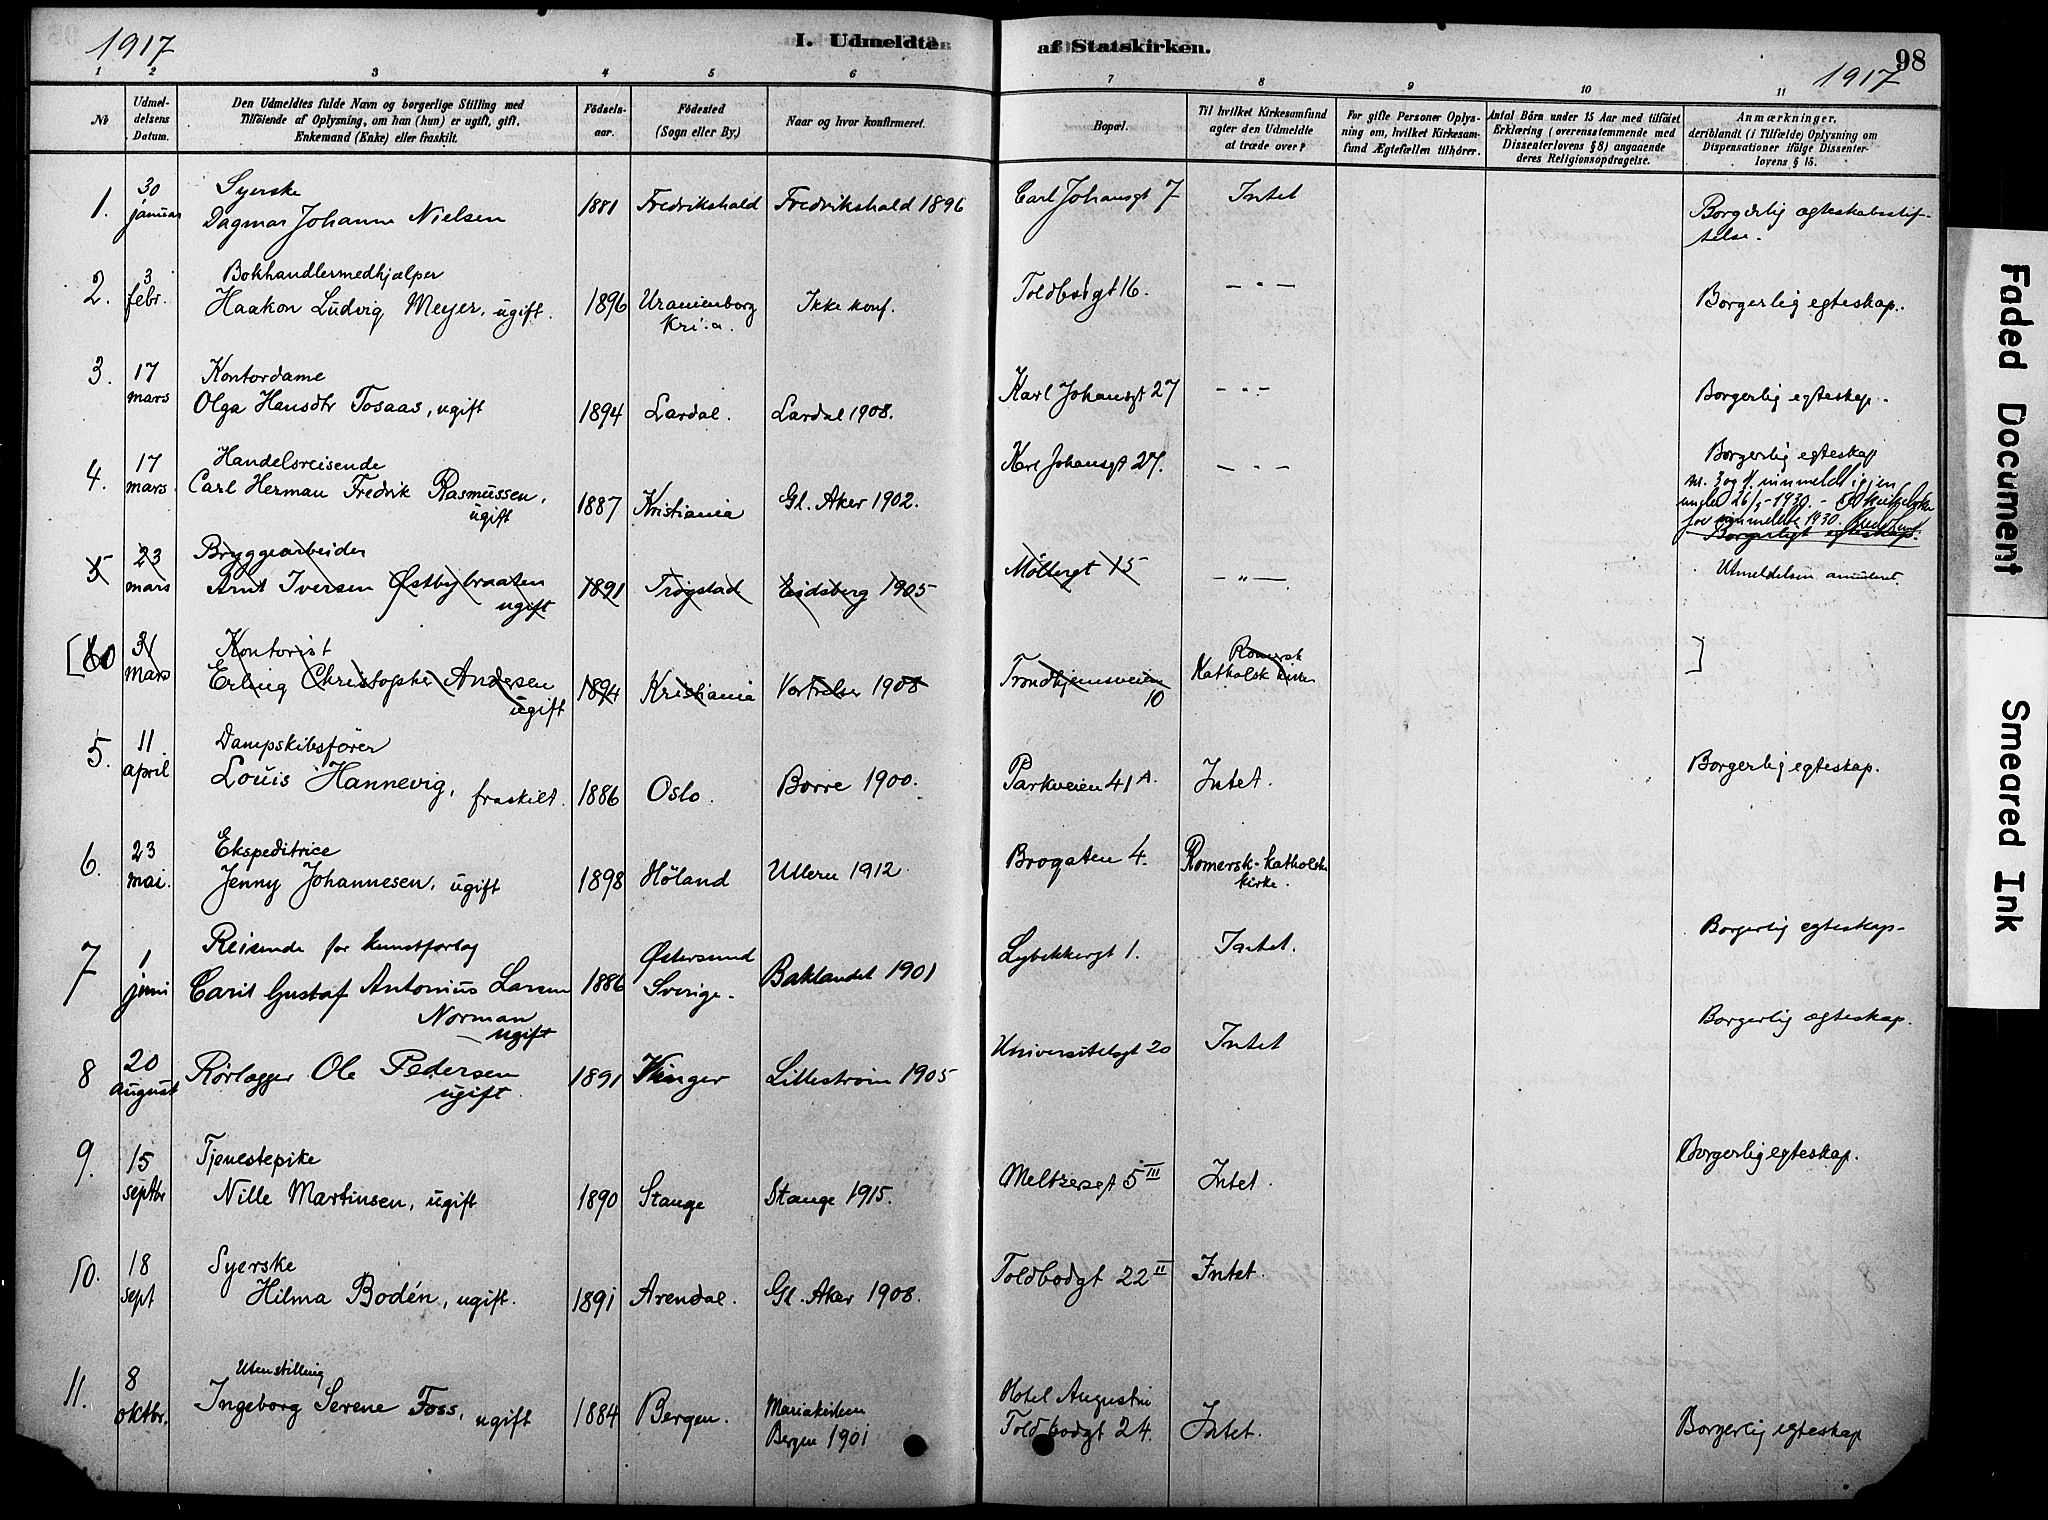 1917
I. Udmeldte af Statskirken.
98
1917
1 2 3 4 5 6 7 8 9 10 11
No
Udmel-
delsens
Datum.
Den Udmeldtes fulde Navn og borgerlige Stilling med
Tilföiende af Oplysning, om han (hun) er ugift, gift,
Enkemand (Enke) eller fraskilt.
Födsels-
aar.
Födested
(Sogn eller By.)
Naar og hvor konfirmeret.
Bopæl.
Til hvilket Kirkesamfund
agter den Udmeldte
at træde over?
For gifte Personer Oplys-
ning om, hvilket Kirkesam-
fund Ægtefællen tilhörer.
Antal Börn under 15 Aar med tilföiet
Erklæring (overensstemmende med
Dissenterlovens § 8) angaaende
deres Religionsopdragelse.
Anmærkninger,
deriblandt (i Tilfælde) Oplysning om
Dispensationer ifölge Dissenter-
lovens § 15.
1.
30
januar
Syerske
Dagmar Johanne Nielsen
1881
Fredrikshald
Fredrikshald 1896
Carl Johansgt 7
Intet
Borgerlig ægteskabsstif-
telse.
2.
3
febr.
Bokhandlermedhjælper
Haakon Ludvig Meyer, ugift.
1896
Uranienborg
Kri.a.
Ikke konf.
Toldbodgt 16.
— " —
Borgerlig egteskap.
3.
17
mars
Kontordame
Olga Hansdtr Tosaas, ugift
1894
Lardal.
Lardal 1908.
Karl Johansgt 27
— " —
Borgerlig egteskap.
4.
17
mars.
Handelsreisende
Carl Herman Fredrik Rasmussen,
ugift
1887
Kristiania
Gl. Aker 1902.
Karl Johansgt 27.
— " —
Borgerlig egteskap
nr. 3 og 4. innmeldt igjen
under 26/5 - 1930. -
for innmeldte 1930.
Borgerligt egteskap.
5
23
mars
Bryggearbeider
Arnt Iversen Østbybraaten
ugift
1891
Trøgstad
Eidsberg 1905
Møllergt 15
— " —
Utmeldelsen annulleret.
[60
31
mars
Kontorist
Erling Christopher Andersen
ugift
1894
Kristiania
Vartrelser 1908
Trondhjemsveien
10
Romersk
Katholsk kirke
]
5.
11
april
Dampskibsfører
Louis Hannevig, fraskilt.
1886
Oslo.
Borre 1900.
Parkveien 41 A.
Intet.
Borgerlig egteskap.
6.
23
mai.
Ekspeditrice
Jenny Johannesen, ugift
1898
Høland
Ullern 1912
Brogaten 4.
Romersk-katholske
kirke.
7
1
juni
Reisende for kunstforlag
Caril Gustaf Antonius Larsen
Norman
ugift
1886
Østersund
Sverige.
Baklandet 1901
Lybekkergt 1.
Intet.
Borgerlig egteskap.
8
20
august
Rørlægger Ole Pedersen
ugift.
1891
Vinger
Lillestrøm 1905
Universitetsgt 20
Intet
Borgerlig ægteskap.
9.
15
septbr
Tjenestepike
Nille Martinsen, ugift
1890
Stange
Stange 1915.
Meltzersgt 5 III
Intet.
Borgerlig egteskap.
10.
18
sept
Syerske
Hilma Bodén, ugift.
1891
Arendal.
Gl. Aker 1908.
Toldbodgt 22 II
Intet.
11.
8
oktbr.
Uten stilling
Ingeborg Serene Foss, ugift
1884
Bergen.
Mariakirken
Bergen 1901
Hotel Augustin
Toldbodgt 24.
Intet.
Borgerlig egteskap
Faded Document
Smeared Ink